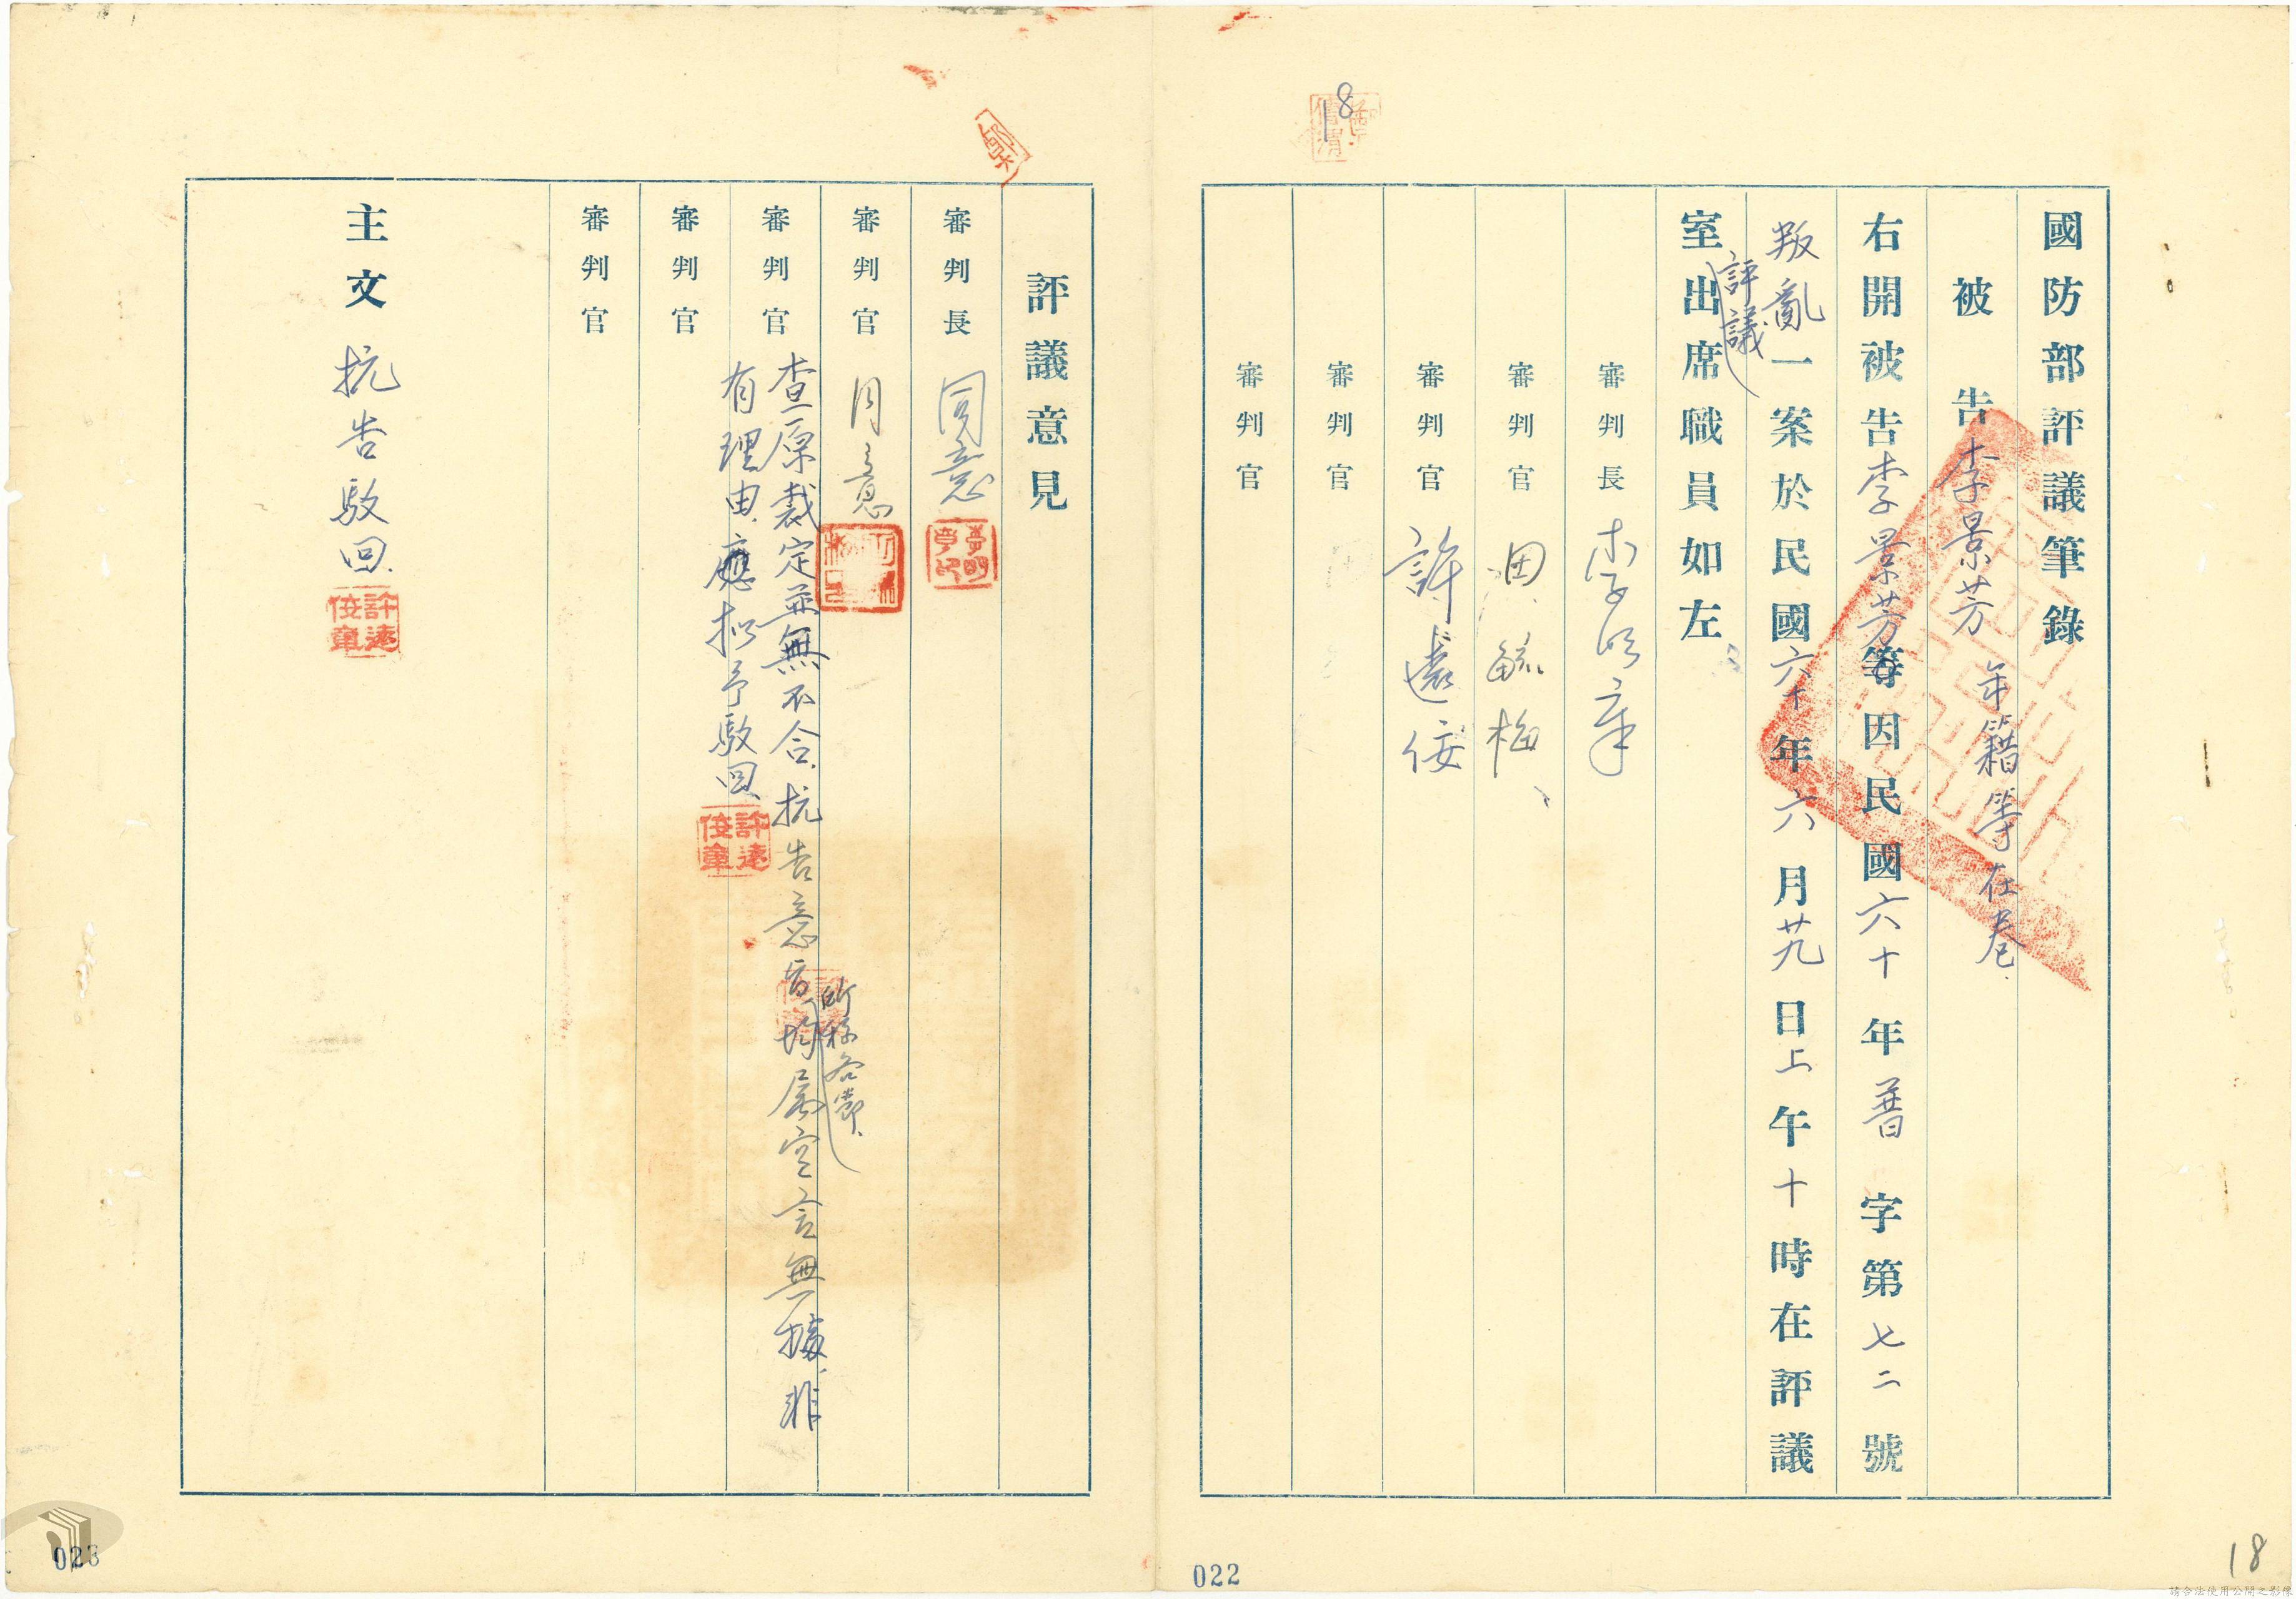 18
國防部評議筆錄
被告李景芳 年籍等在卷
右開被告李景芳等因民國六十年普字第七二號
叛亂一案於民國六十年六月廿九日上午十時在評議
評議
室出席職員如左
審判長
審判官 田毓梅
審判官 許遠俊
審判官
審判官
022
18
評議意見
審判長 同意
審判官 同意
審判官 查原裁定並無不合、抗告意旨均屬空言無據、非
所稱各節、
有理由、應擬予駁回、
許遠俊章
審判官
審判官
主文 抗告駁回.
許遠俊章
023
請合法使用公開之影像